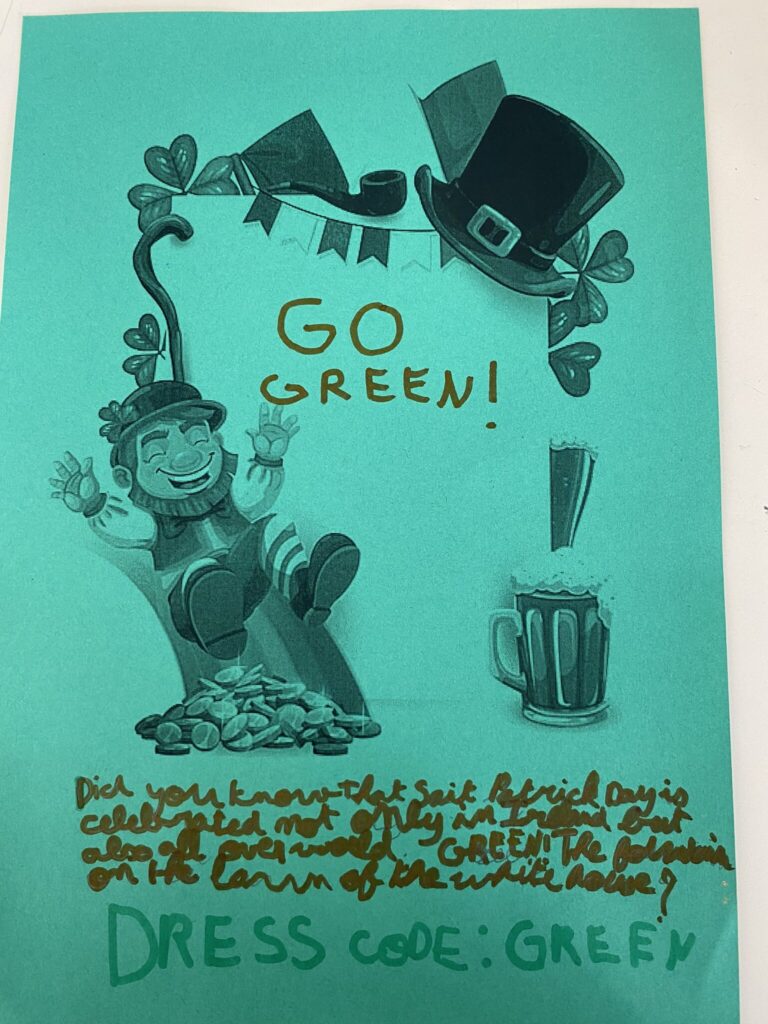 GO
GREEN!
Did you know that Sait Patrick Day is
celebrated not only in Ireland but
also all over world. GREEN! The fountain
on the Lawn of the white house?
DRESS CODE: GREEN